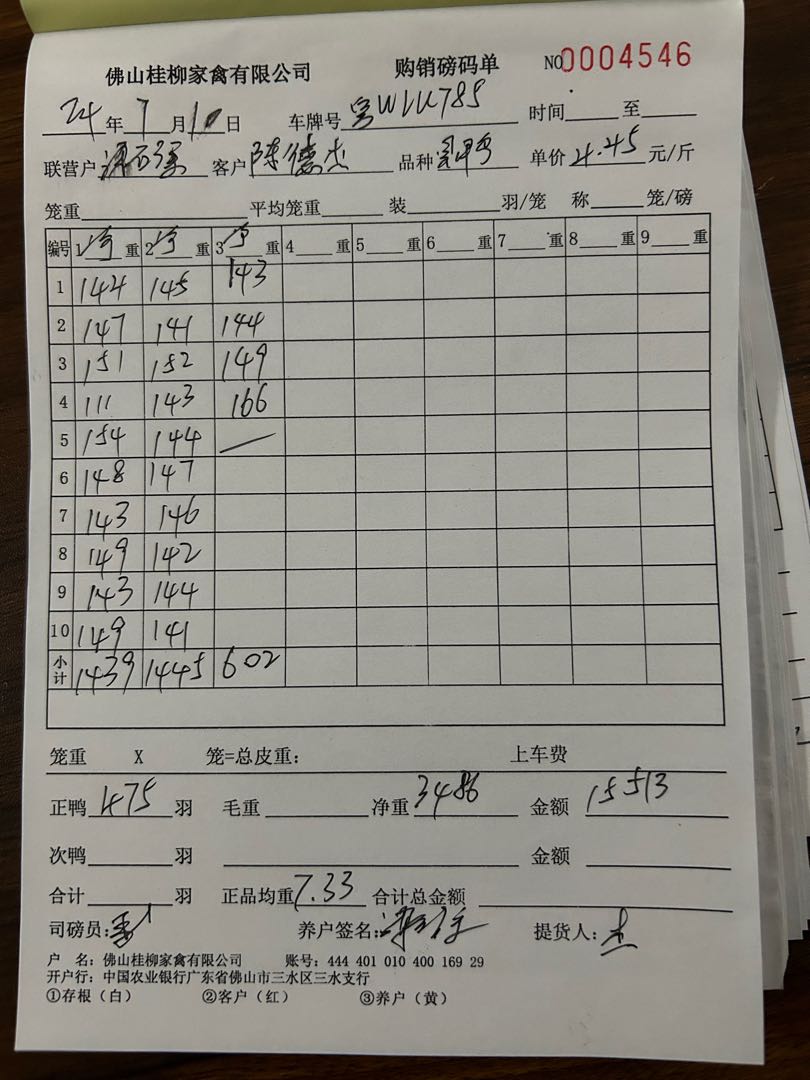 佛山桂柳家禽有限公司 购销磅码单 NO0004546
24年7月10日 车牌号粤W1K785 时间 至
联营户 客户陈德杰 品种 单价4.45元/斤
笼重 平均笼重 装 羽/笼 称 笼/磅
编号 1净重 2净重 3净重 4 重 5 重 6 重 7 重 8 重 9 重
1 144 145 143
2 147 141 144
3 151 152 149
4 111 143 166
5 154 144 —
6 148 147
7 143 146
8 149 142
9 143 144
10 149 141
小计 1439 1445 602
笼重 X 笼=总皮重： 上车费
正鸭475羽 毛重 净重3486 金额15513
次鸭 羽 金额
合计 羽 正品均重7.33 合计总金额
司磅员： 养户签名： 提货人：杰
户 名：佛山桂柳家禽有限公司 账号：444 401 010 400 169 29
开户行：中国农业银行广东省佛山市三水区三水支行
①存根（白） ②客户（红） ③养户（黄）